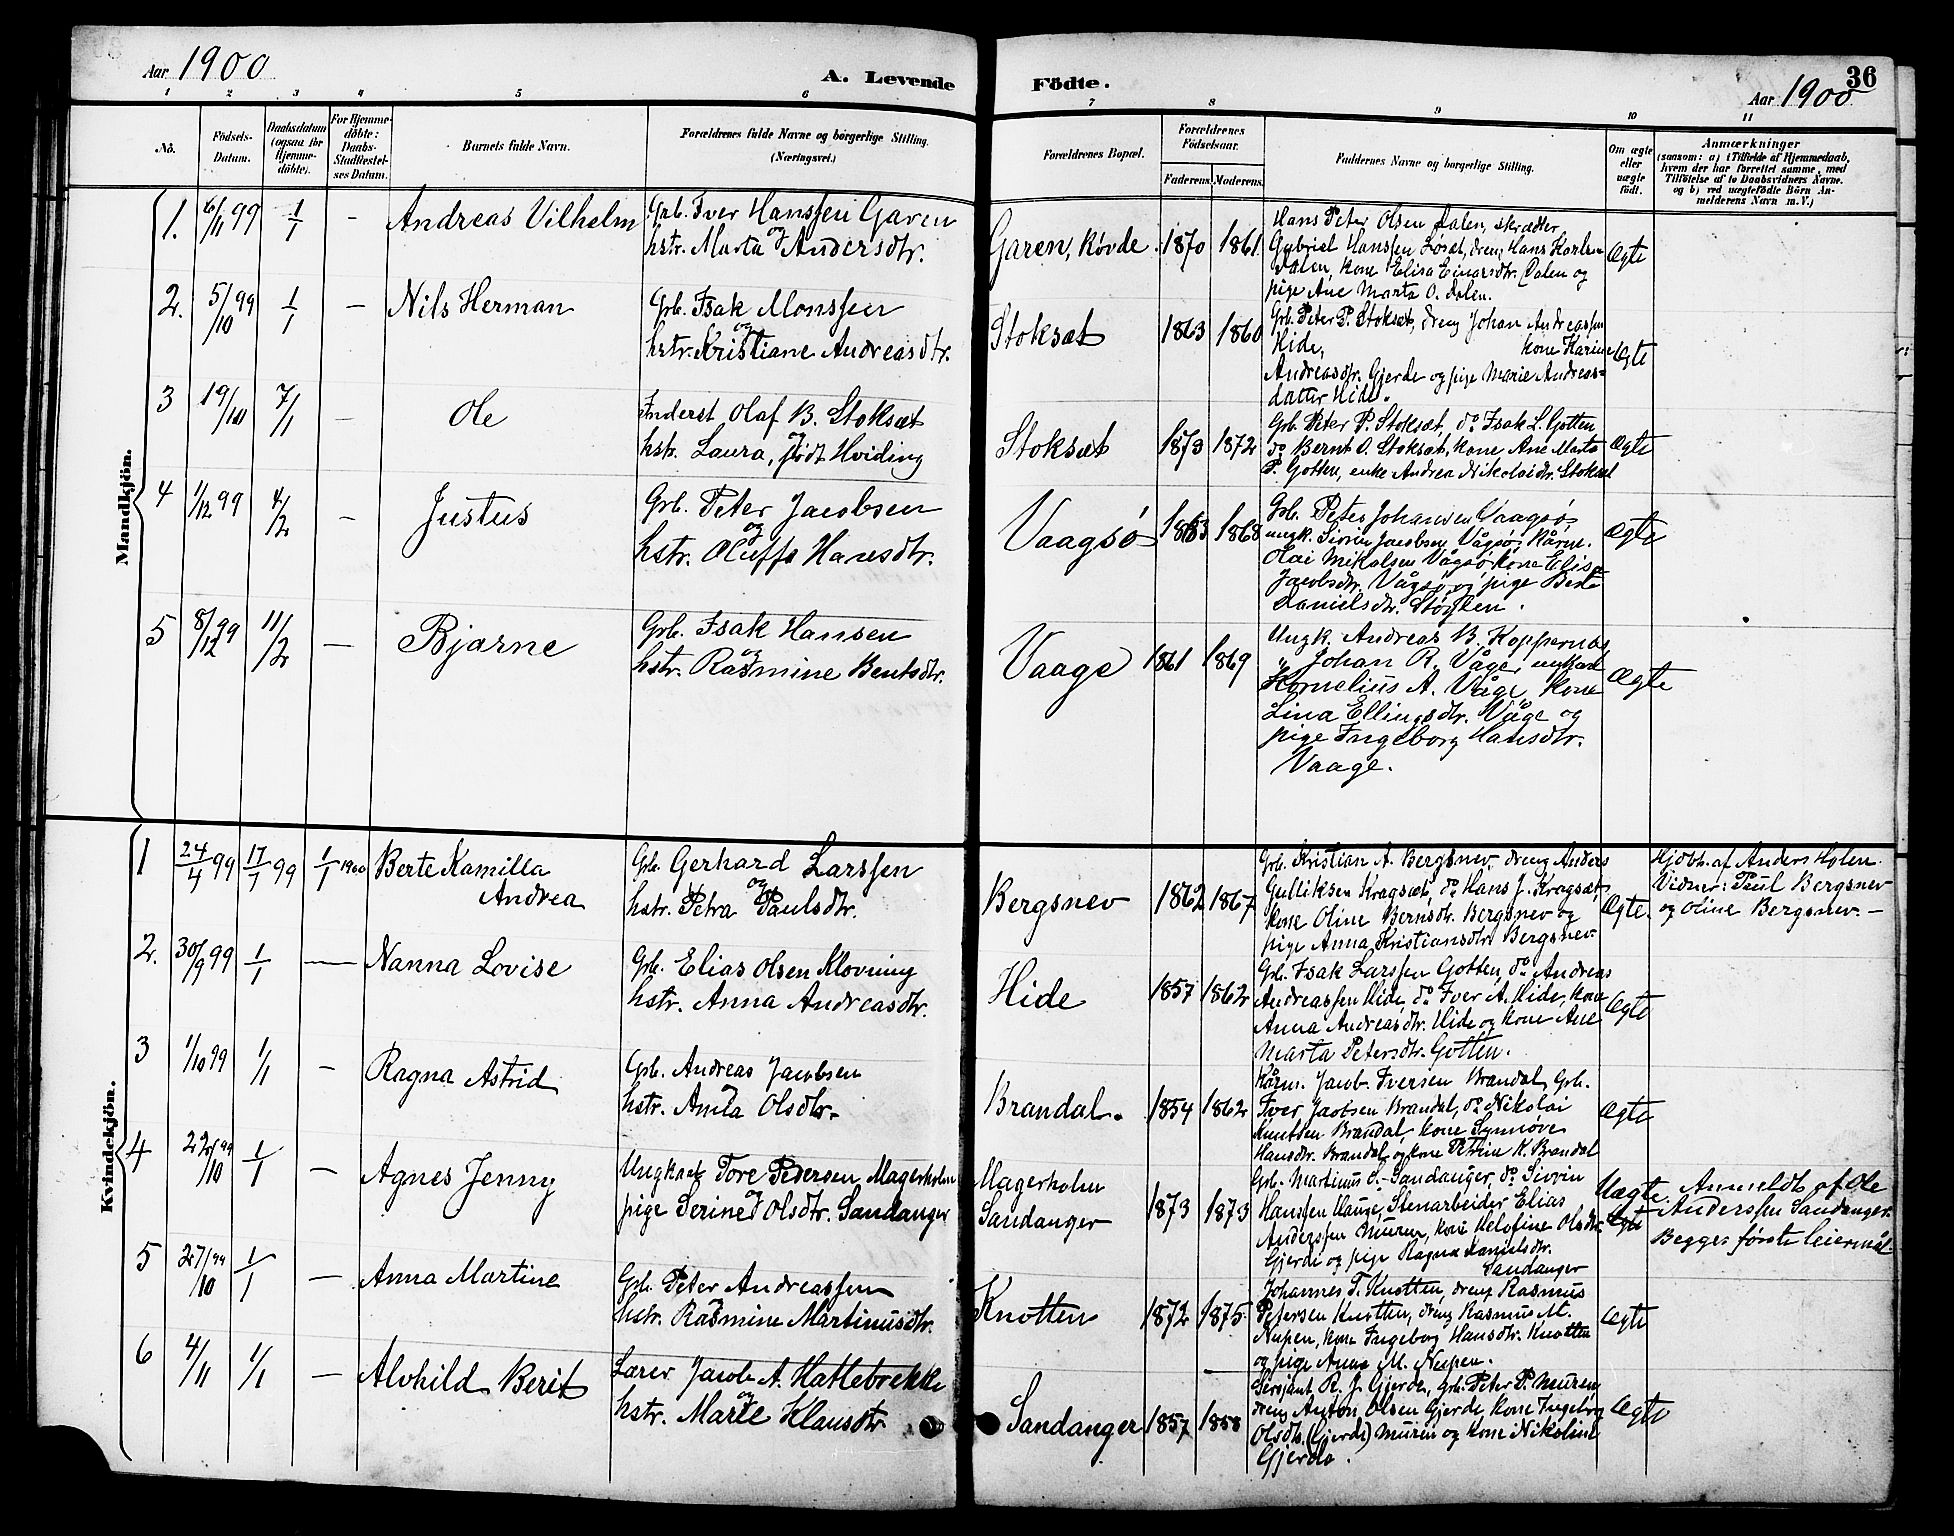 Aar 1900
A. Levende
Födte.
36
Aar 1900
1 2 3 4 5 6 7 8 9 10 11
Nö.
Födsels-
Datum.
Daabsdatum
(ogsaa for
Hjemme-
döbte).
For Hjemme-
döbte:
Daabs-
Stadfæstel-
ses Datum.
Barnets fulde Navn.
Forældrenes fulde Navne og borgerlige Stilling.
(Næringsvei.)
Forældrenes Bopæl.
Forældrenes
Födselsaar.
Faderens. Moderens.
Faddernes Navne og borgerlige Stilling.
Om ægte
eller
uægte
födt.
Anmærkninger
(saasom: a) i Tilfælde af Hjemmedaab,
hvem der har forrettet samme, med
Tilföielse af to Daabsvidners Navne.
og b) ved uægtefödte Börn An-
melderens Navn m. V.)
Mandkjön.
1. 6/11 99 1/1 - Andreas Vilhelm
Grb. Iver Hanssen Garen
og
hstr. Marta Andersdtr.
Garen, Røvde. 1870 1861
Hans Peter Olsen Dalen, skrædder
Gabriel Hanssen Løset, dreng Hans Karlsen
Dalen, kone Elisa Einarsdtr. Dalen og
pige Ane Marta O. Dalen.
Ægte
2. 5/10 99 1/1 - Nils Herman
Grb. Isak Monssen
og
hstr. Kristiane Andreasdtr.
Stoksæt 1863 1860
Grb. Peter P. Stoksæt, dreng Johan Andreassen
Hide, kone Karine
Andreasdtr. Gjerde og pige Marie Andreas-
datter Hide.
Ægte
3 19/10 7/1 - Ole
Inderst Olaf B. Stoksæt
og
hstr. Laura, født Hviding
Stoksæt 1873 1872
Grb. Peter P. Stoksæt, do Isak L. Gotten
do Bernt O. Stoksæt, kone Ane Marta
P. Gotten, enke Andrea Nikolaidtr. Stoksæt
Ægte
4 1/12 99 4/2 - Justus
Grb. Peter Jacobsen
og
hstr. Oluffa Hansdtr.
Vaagsø 1863 1868
Grb. Peter Johansen Vaagsø,
ungk. Sivrin Jacobsen Vågsø, Kårm.
Olai Mikalsen Vågsø, kone Elise
Jacobsdtr. Vågsø og pige Berte
Danielsdtr. Støylen.
Ægte
5 8/12 99 11/2 - Bjarne
Grb. Isak Hansen
og
hstr. Rasmine Bentsdtr.
Vaage 1861 1869
Ungk. Andreas B. Koppernæs,
" Johan R. Våge, ungkarl
Kornelius A. Våge, kone
Lina Ellingsdtr. Våge og
pige Ingeborg Hansdtr.
Vaage.
Ægte
Kvindekjön.
1 24/4 99 17/7 99 1/1 1900 Berte Kamilla
Andrea
Grb. Gerhard Larssen
og
hstr. Petra Paulsdtr.
Bergsnev 1862 1867
Grb. Kristian A. Bergsnev, dreng Anders
Gulliksen Kragsæt, do Hans J. Kragsæt,
kone Oline Berntsdtr. Bergsnev og
pige Anna Kristiansdtr. Bergsnev.
Ægte.
Hjdbt. af Anders Holen.
Vidner: Paul Bergsnev
og Oline Bergsnev. —
2. 30/9 99 1/1 — Nanna Lovise
Grb. Elias Olsen Klovning
hstr. Anna Andreasdtr.
Hide 1857 1862
Grb. Isak Larssen Gotten, do Andreas
Andreassen Hide, do Iver A. Hide, kone
Anna Andreasdtr. Hide og kone Ane
Marta Petersdtr. Gotten.
Ægte
3 1/10 99 1/1 - Ragna Astrid
Grb. Andreas Jacobsen
og
hstr. Anna Olsdtr.
Brandal. 1854 1862
Kårm. Jacob Iversen Brandal, Grb.
Iver Jacobsen Brandal, do Nikolai
Knutsen Brandal, kone Synnøve
Hansdtr. Brandal og kone Petrine K. Brandal
Ægte
4 22/10 99 1/1 - Agnes Jenny
Ungkarl Tore Pedersen Magerholm
og
pige Serine Olsdtr. Sandanger
Magerholm
Sandanger
1873 1873
Grb. Martinus O. Sandanger, do Sivrin
Hanssen Hauge, Stenarbeider Elias
Anderssen Muren, kone Olsdtr.
Gjerde og pige Ragna Danielsdtr.
Sandanger
Uægte.
Ægte
Anmeldt af Ole
Anderssen Sandanger.
Begges første leiermål.
5 27/10 99 1/1 - Anna Martine
Grb. Peter Andreassen
og
hstr. Rasmine Martinusdtr.
Knotten 1872 1875
Johannes T. Knotten, dreng Rasmus
Petersen Knotten, dreng Rasmus M.
Nupen, kone Ingeborg Hansdtr. Knotten
og pige Anna M. Nupen.
Ægte
6 4/11 1/1 - Alvhild Berit
Lærer Jacob A. Hattebrekke
og
hstr. Marie Klausdtr.
Sandanger 1857 1858
Sersjant R. J. Gjerde, grb. Peter P. Muren,
dreng Anton Olsen Gjerde, kone Ingeborg
Olsdtr. (Gjerde) Muren og kone Nikoline
Gjerde.
Ægte